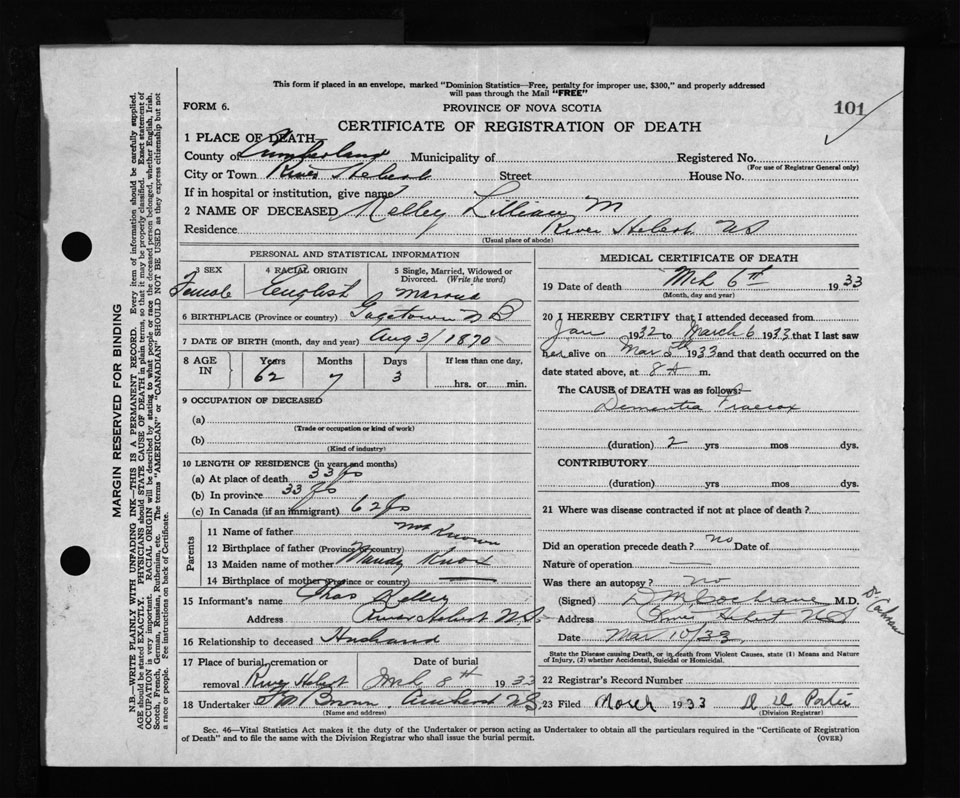 This form if placed in an envelope, marked "Dominion Statistics—Free, penalty for improper use, $300," and properly addressed
will pass through the Mail "FREE"
FORM 6.
PROVINCE OF NOVA SCOTIA
101
CERTIFICATE OF REGISTRATION OF DEATH
1 PLACE OF DEATH
County of Cumberland Municipality of Registered No.
(For use of Registrar General only)
City or Town River Hebert Street House No.
If in hospital or institution, give name
2 NAME OF DECEASED Kelley Lillian M
Residence River Hebert NS
(Usual place of abode)
PERSONAL AND STATISTICAL INFORMATION
3 SEX 4 RACIAL ORIGIN 5 Single, Married, Widowed or Divorced. (Write the word)
Female English Married
6 BIRTHPLACE (Province or country) Gagetown N B
7 DATE OF BIRTH (month, day and year) Aug 3/1870
8 AGE IN Years Months Days If less than one day,
62 7 3 hrs. or min.
9 OCCUPATION OF DECEASED
(a)
(Trade or occupation or kind of work)
(b)
(Kind of industry)
10 LENGTH OF RESIDENCE (in years and months)
(a) At place of death 33 yrs
(b) In province 33 yrs
(c) In Canada (if an immigrant) 62 yrs
Parents
11 Name of father not Known
12 Birthplace of father (Province or country)
13 Maiden name of mother Mandy Knox
14 Birthplace of mother (Province or country) —
15 Informant's name Chas Kelley
Address River Hebert N.S.
16 Relationship to deceased Husband
17 Place of burial, cremation or removal River Hebert
Date of burial Mch 8th 1933
18 Undertaker Brown Amherst N.S.
(Name and address)
MEDICAL CERTIFICATE OF DEATH
19 Date of death Mch 6th 1933
(Month, day and year)
20 I HEREBY CERTIFY that I attended deceased from
Jan 1932 to March 6 1933 that I last saw
her alive on Mar 5th 1933 and that death occurred on the
date stated above, at 8 m.
The CAUSE of DEATH was as follows:—
Dementia Praecox
(duration) 2 yrs mos dys.
CONTRIBUTORY
(duration) yrs mos dys.
21 Where was disease contracted if not at place of death?
Did an operation precede death? no Date of
Nature of operation —
Was there an autopsy? no
(Signed) D M Cochrane M.D.
Address River Hebert NS
Dr Cochrane
Date Mar 10/33
State the Disease causing Death, or in death from Violent Causes, state (1) Means and Nature
of Injury, (2) whether Accidental, Suicidal or Homicidal.
22 Registrar's Record Number
23 Filed March 1933 Porter
(Division Registrar)
Sec. 46—Vital Statistics Act makes it the duty of the Undertaker or person acting as Undertaker to obtain all the particulars required in the "Certificate of Registration
of Death" and to file the same with the Division Registrar who shall issue the burial permit.
(OVER)
MARGIN RESERVED FOR BINDING
N.B.—WRITE PLAINLY WITH UNFADING INK—THIS IS A PERMANENT RECORD. Every item of information should be carefully supplied.
AGE should be stated EXACTLY. PHYSICIANS should STATE CAUSE OF DEATH in plain terms, so that it may be properly classified. Exact statement of
OCCUPATION is very important. RACIAL ORIGIN will be described by stating to what people or race the deceased person belonged, whether English, Irish,
Scotch, French, German, Russian, Ruthenian, etc. The terms "AMERICAN" or "CANADIAN" SHOULD NOT BE USED as they express citizenship but not
a race or people. See instructions on back of Certificate.